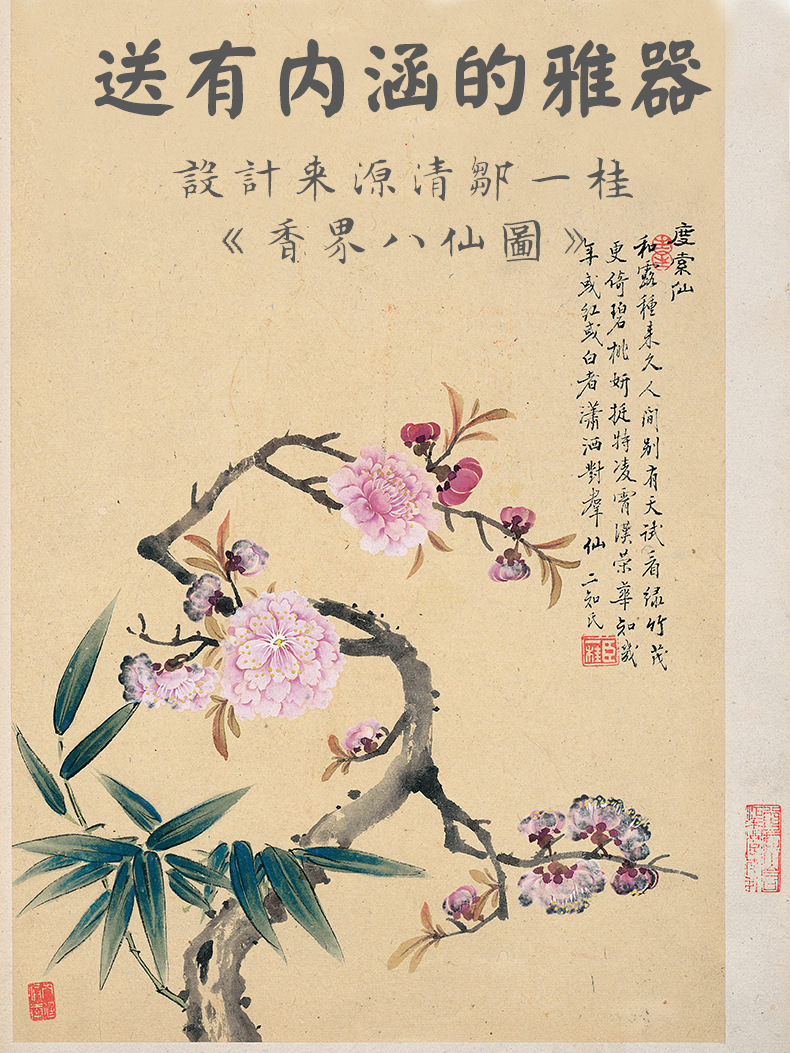 送有内涵的雅器
設計来源清鄒一桂
《香界八仙圖》
度索仙
和露種来久人间别有天试看绿竹茂
更倚碧桃妍挺特凌霄漢荣華知幾
年或红或白者瀟洒對羣仙 二知氏
臣
桂